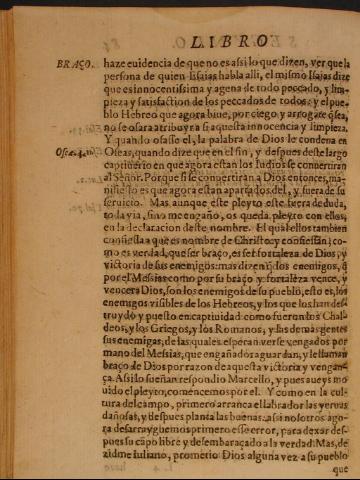 LIBRO
BRAÇO. haze euidencia de que no es assi lo que dizen, ver que la
persona de quien Esaias habla alli, el mismo Isaias dize
que es innocentissima y agena de todo peccado, y lim-
pieza y satisfaction de los peccados de todos: y el pue-
blo Hebreo que agora biue, por ciego y arrogãte q̃ sea,
no se osara atribuyr a si aquesta innocencia y limpieza.
Y quando osasse el, la palabra de Dios le condena en
Oseas, quando dize que en el fin, y despues deste largo
captiuerio en que agora estan los Iudios se conuertiran
al Señor. Porque si se conuertiran a Dios entonces, ma-
nifiesto es que agora estan apartados del, y fuera de su
seruicio. Mas aunque este pleyto este fuera de duda,
toda via, sino me engaño, os queda pleyto con ellos,
en la declaracion deste nombre. El qual ellos tambien
confiessan que es nombre de Christo: y confiessan, co-
mo es verdad, que ser braço, es ser fortaleza de Dios, y
victoria de sus enemigos: mas dizen q̃ los enemigos, q̃
por el Messias como por su braço y fortaleza vence, y
vencera Dios, son los enemigos de su pueblo, esto es, los
enemigos visibles de los Hebreos, y los que los han des-
truydo y puesto en captiuidad: como fueron los Chal-
deos, y los Griegos, y los Romanos, y las demas gentes
sus enemigas, de las quales esperan verse vengados por
mano del Messias, que engañados aguardan, y le llaman
braço de Dios por razon de aquesta victoria y vengan-
ça. Assi lo sueñan respondio Marcello, y pues aueys mo
uido el pleyto, comencemos por el. Y como en la cul-
tura del campo, primero arranca el labrador las yeruas
dañosas, y despues planta las buenas: assi nosotros ago-
ra desarrayguemos primero esse error, para dexar des-
pues su cãpo libre y desembaraçado a la verdad. Mas, de
zidme Iuliano, prometio Dios alguna vez a su pueblo
que